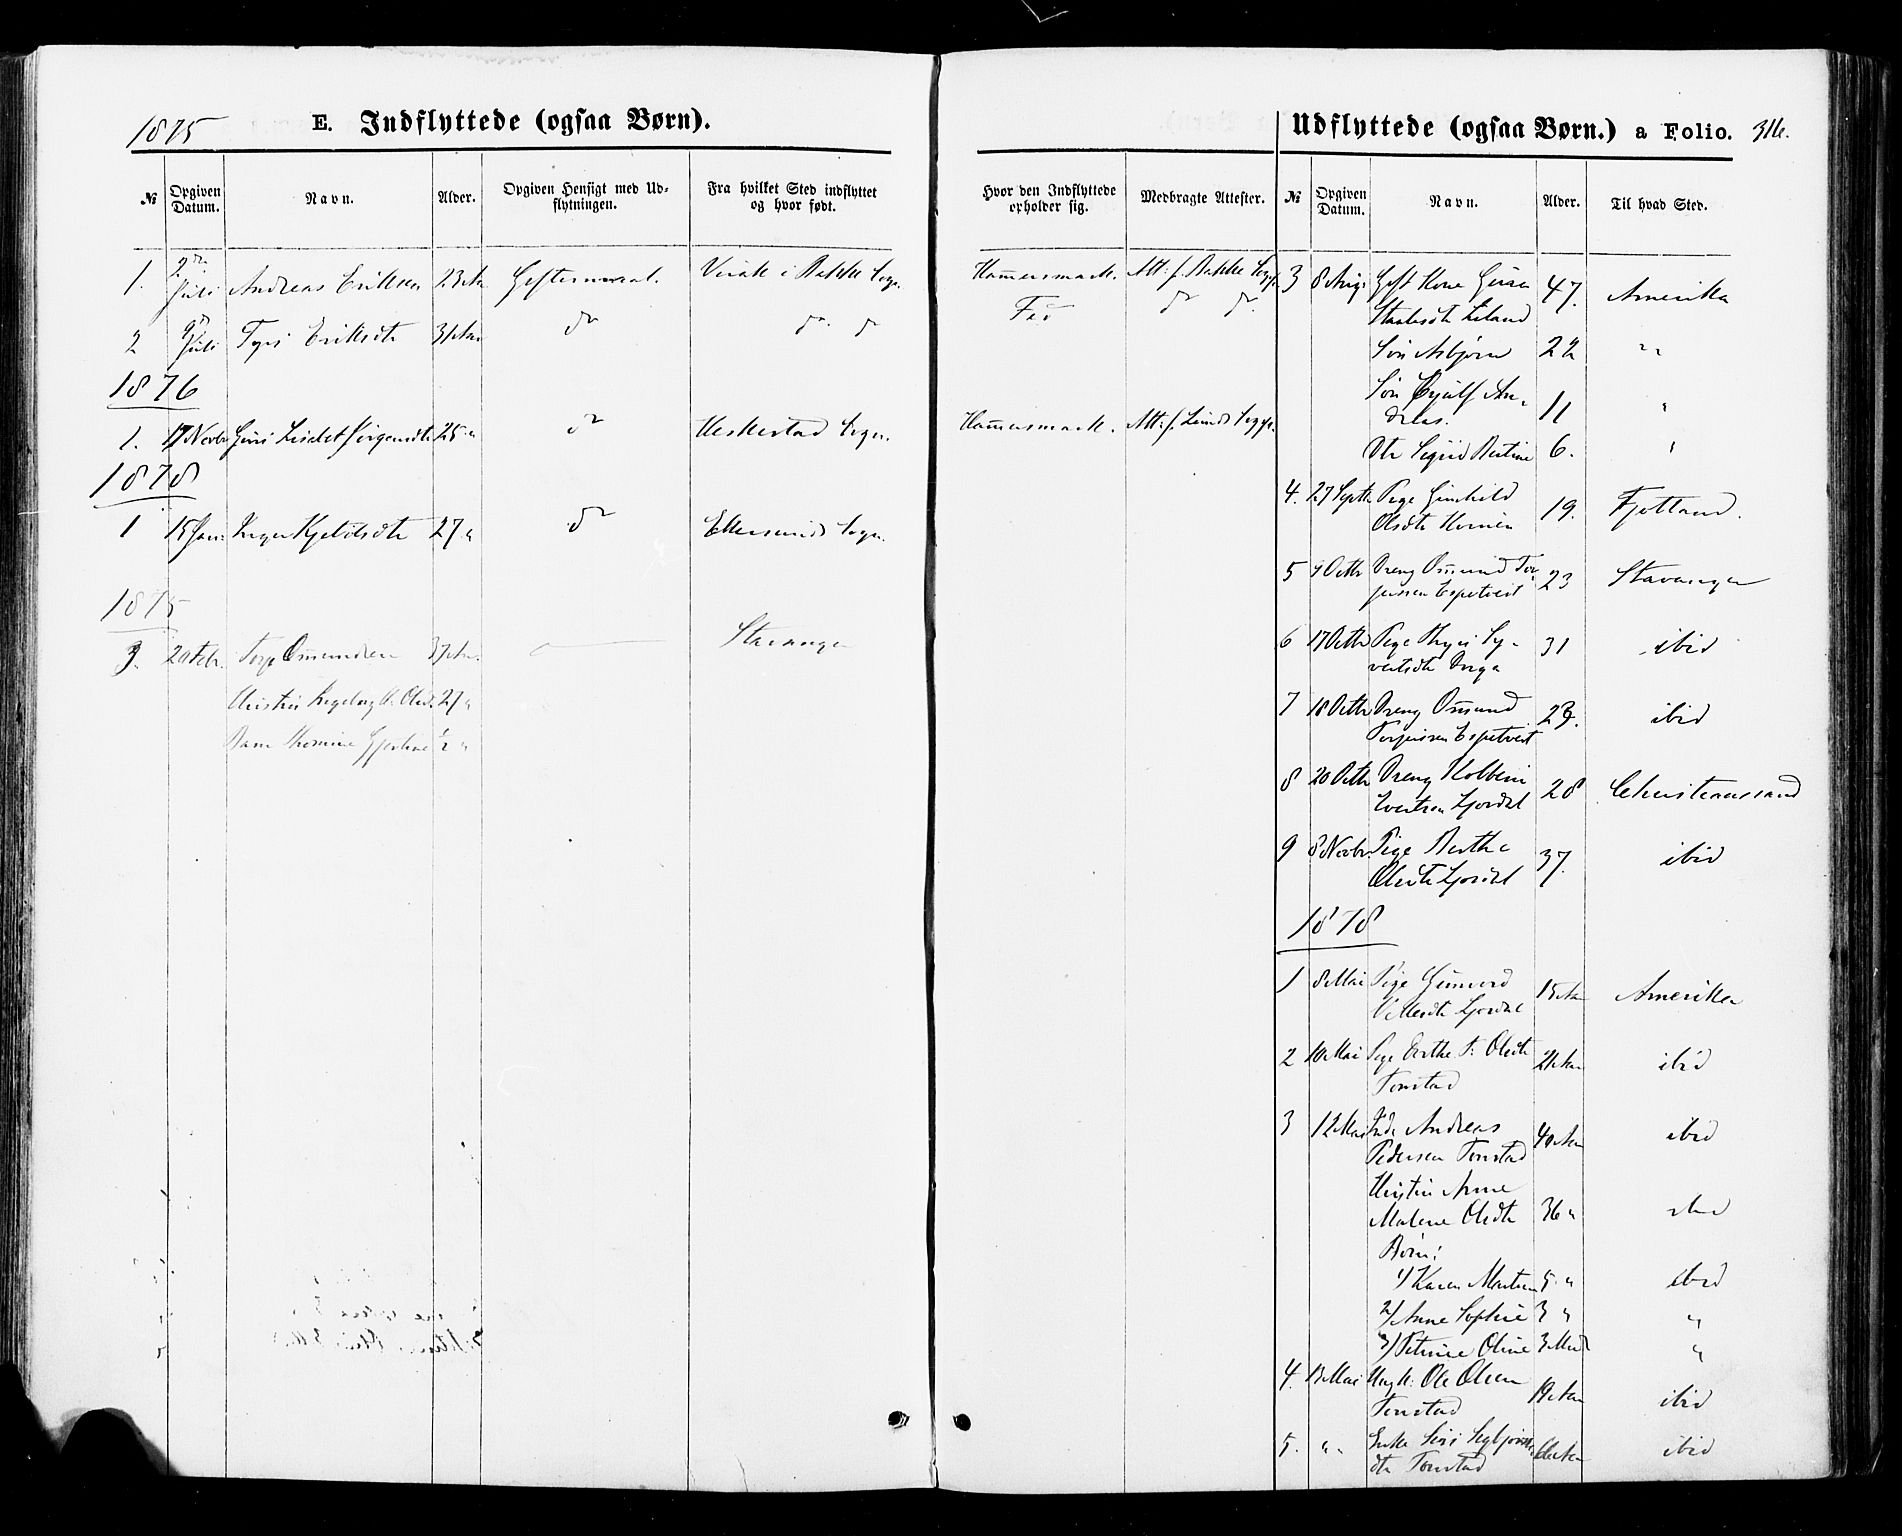 1875
E. Indflyttede (ogsaa Børn).
№ Opgiven Datum. Navn. Alder. Opgiven Hensigt med Udflytningen. Fra hvilket Sted indflyttet og hvor født. Hvor den Indflyttede opholder sig. Medbragte Attester.
1. 2 Juli Andreas Eriksen 23 Aar Giftermaal. Virak i Bakke Sogn. Hamersmark. Att: f. Bakke Sogn
2 Juli Eriksdtr 31 Aar do do do Feö do do
1876
1. 17 Novbr Lisabet Jörgensdtr 25 " do Heskestad Sogn. Hamersmark. Att: f. Lunds
1878
1 15 Jan: Inger Kjetilsdtr 27 " do Ekersunds Sogn.
1875
3. 20 Febr. Osmundsen 37 Aar. Stavanger
Ingeborg Olsdtr 27 "
Barn Thomine ½ "
Udflyttede (ogsaa Børn.) a Folio. 316.
№ Opgiven Datum. Navn. Alder. Til hvad Sted.
3 8 Aug: Gift Kone
47. Amerika
Sön Asbjörn 22 "
Sön An-
dreas. 11 "
Dtr Sigrid Bertine 6. "
4. 27 Septbr Pige Gunhild
Olsdtr 19. Fjotland.
5 9 Octbr Dreng Osmund Tor-
jussen Espetveit 23 Stavanger
6 17 Octbr Pige Sy-
vertsdtr 31 ibid
7 18 Octbr Dreng Osmund
Torjussen Espetveit 23. ibid
8 20 Octbr Dreng Kolbein
Evertsen Ljosdal 28 Christianssand
9 8 Novbr. Pige Berthe
Olsdtr Ljosdal 37. ibid
1878
1 8 Mai Pige Gunvord
Ljosdal 15 Aar Amerika
2 10 Mai Pige Berthe T: Olsdtr
Tonstad 21 Aar ibid
3 12 Mai Andreas
Pedersen Tonstad 40 Aar ibid
Anne
Malene Olsdtr 36 " ibid
Börn:
1/ Karen Martine 5 " ibid
2/ Anne Sophie 3 " "
3/ Petrine Oline 3 Mdr "
4. 13 Mai Ungk: Ole Olsen
Tonstad 19 Aar ibid
5. " " Enke Siri
dtr Tonstad ibid